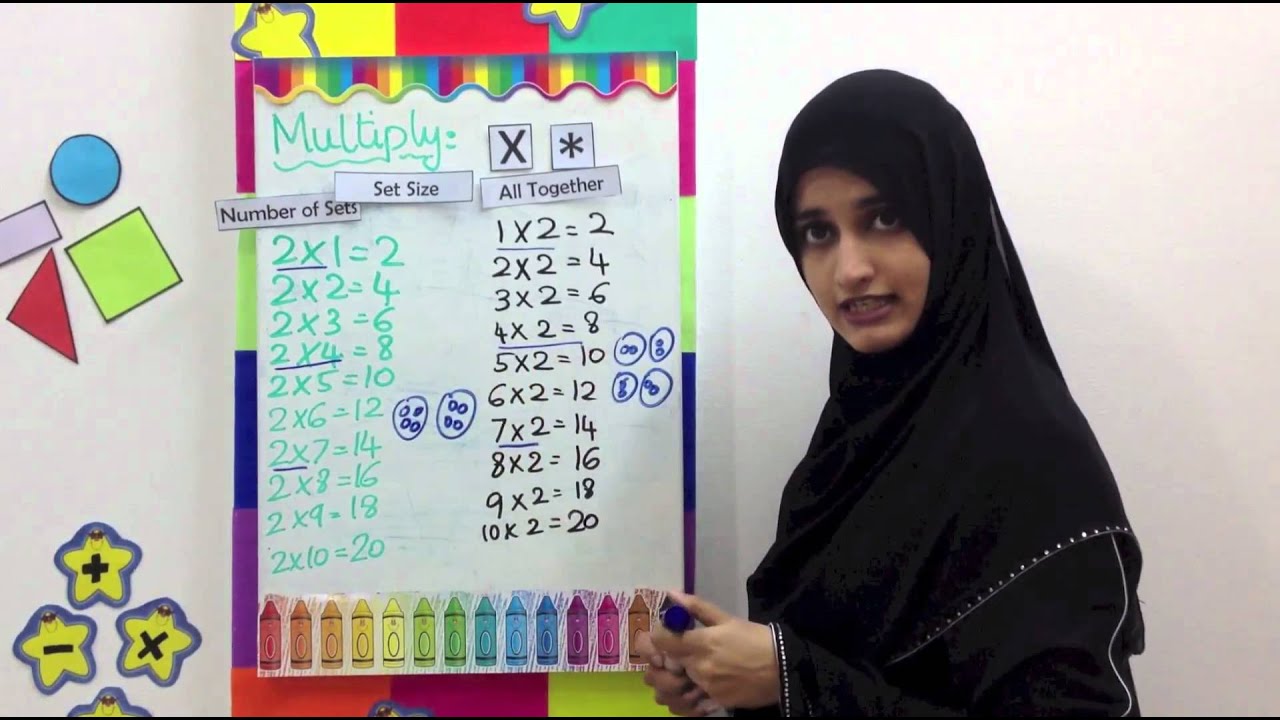 Multiply: X *
Number of Sets Set Size All Together
2x1=2
2x2=4
2x3=6
2x4=8
2x5=10
2x6=12
2x7=14
2x8=16
2x9=18
2x10=20
1x2=2
2x2=4
3x2=6
4x2=8
5x2=10
6x2=12
7x2=14
8x2=16
9x2=18
10x2=20
+
-
x